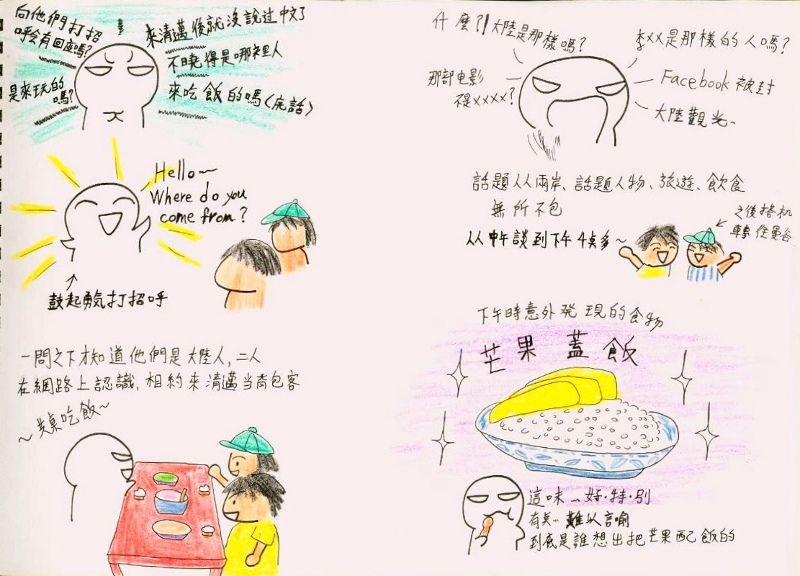 向他們打招
呼會有回應嗎?
是來玩的
嗎?
來清邁後就沒說过中文了
不曉得是哪裡人
來吃飯的嗎(屁話)
Hello~
Where do you
come from?
鼓起勇氣打招呼
一問之下才知道他們是大陸人,二人
在網路上認識,相約來清邁当背包客
~共桌吃飯~
什麼?!大陸是那樣嗎?
李XX是那樣的人嗎?
那部电影
不是xxxx?
Facebook被封
大陸觀光、
話題从兩岸、話題人物、旅遊、飲食
無所不包
从中午談到下午4點多~
之後搭机
轉往曼谷
下午時意外発現的食物
芒果蓋飯
這味~好·特·別
有点…難以言喻
到底是誰想出把芒果配飯的